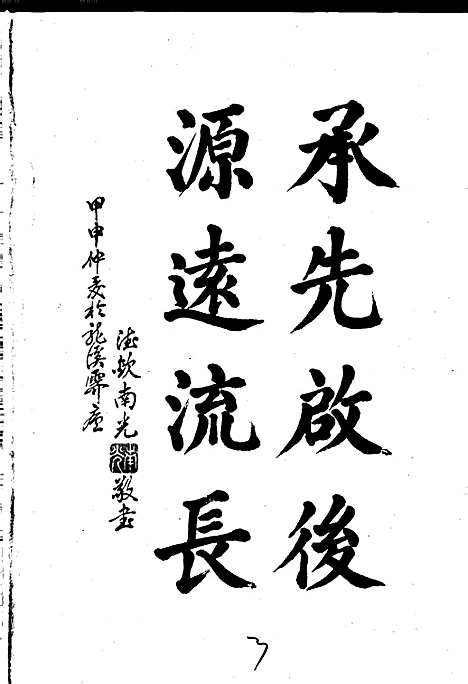 承先啟後
源遠流長
德欽南光敬書
甲申仲夏於龍溪
3